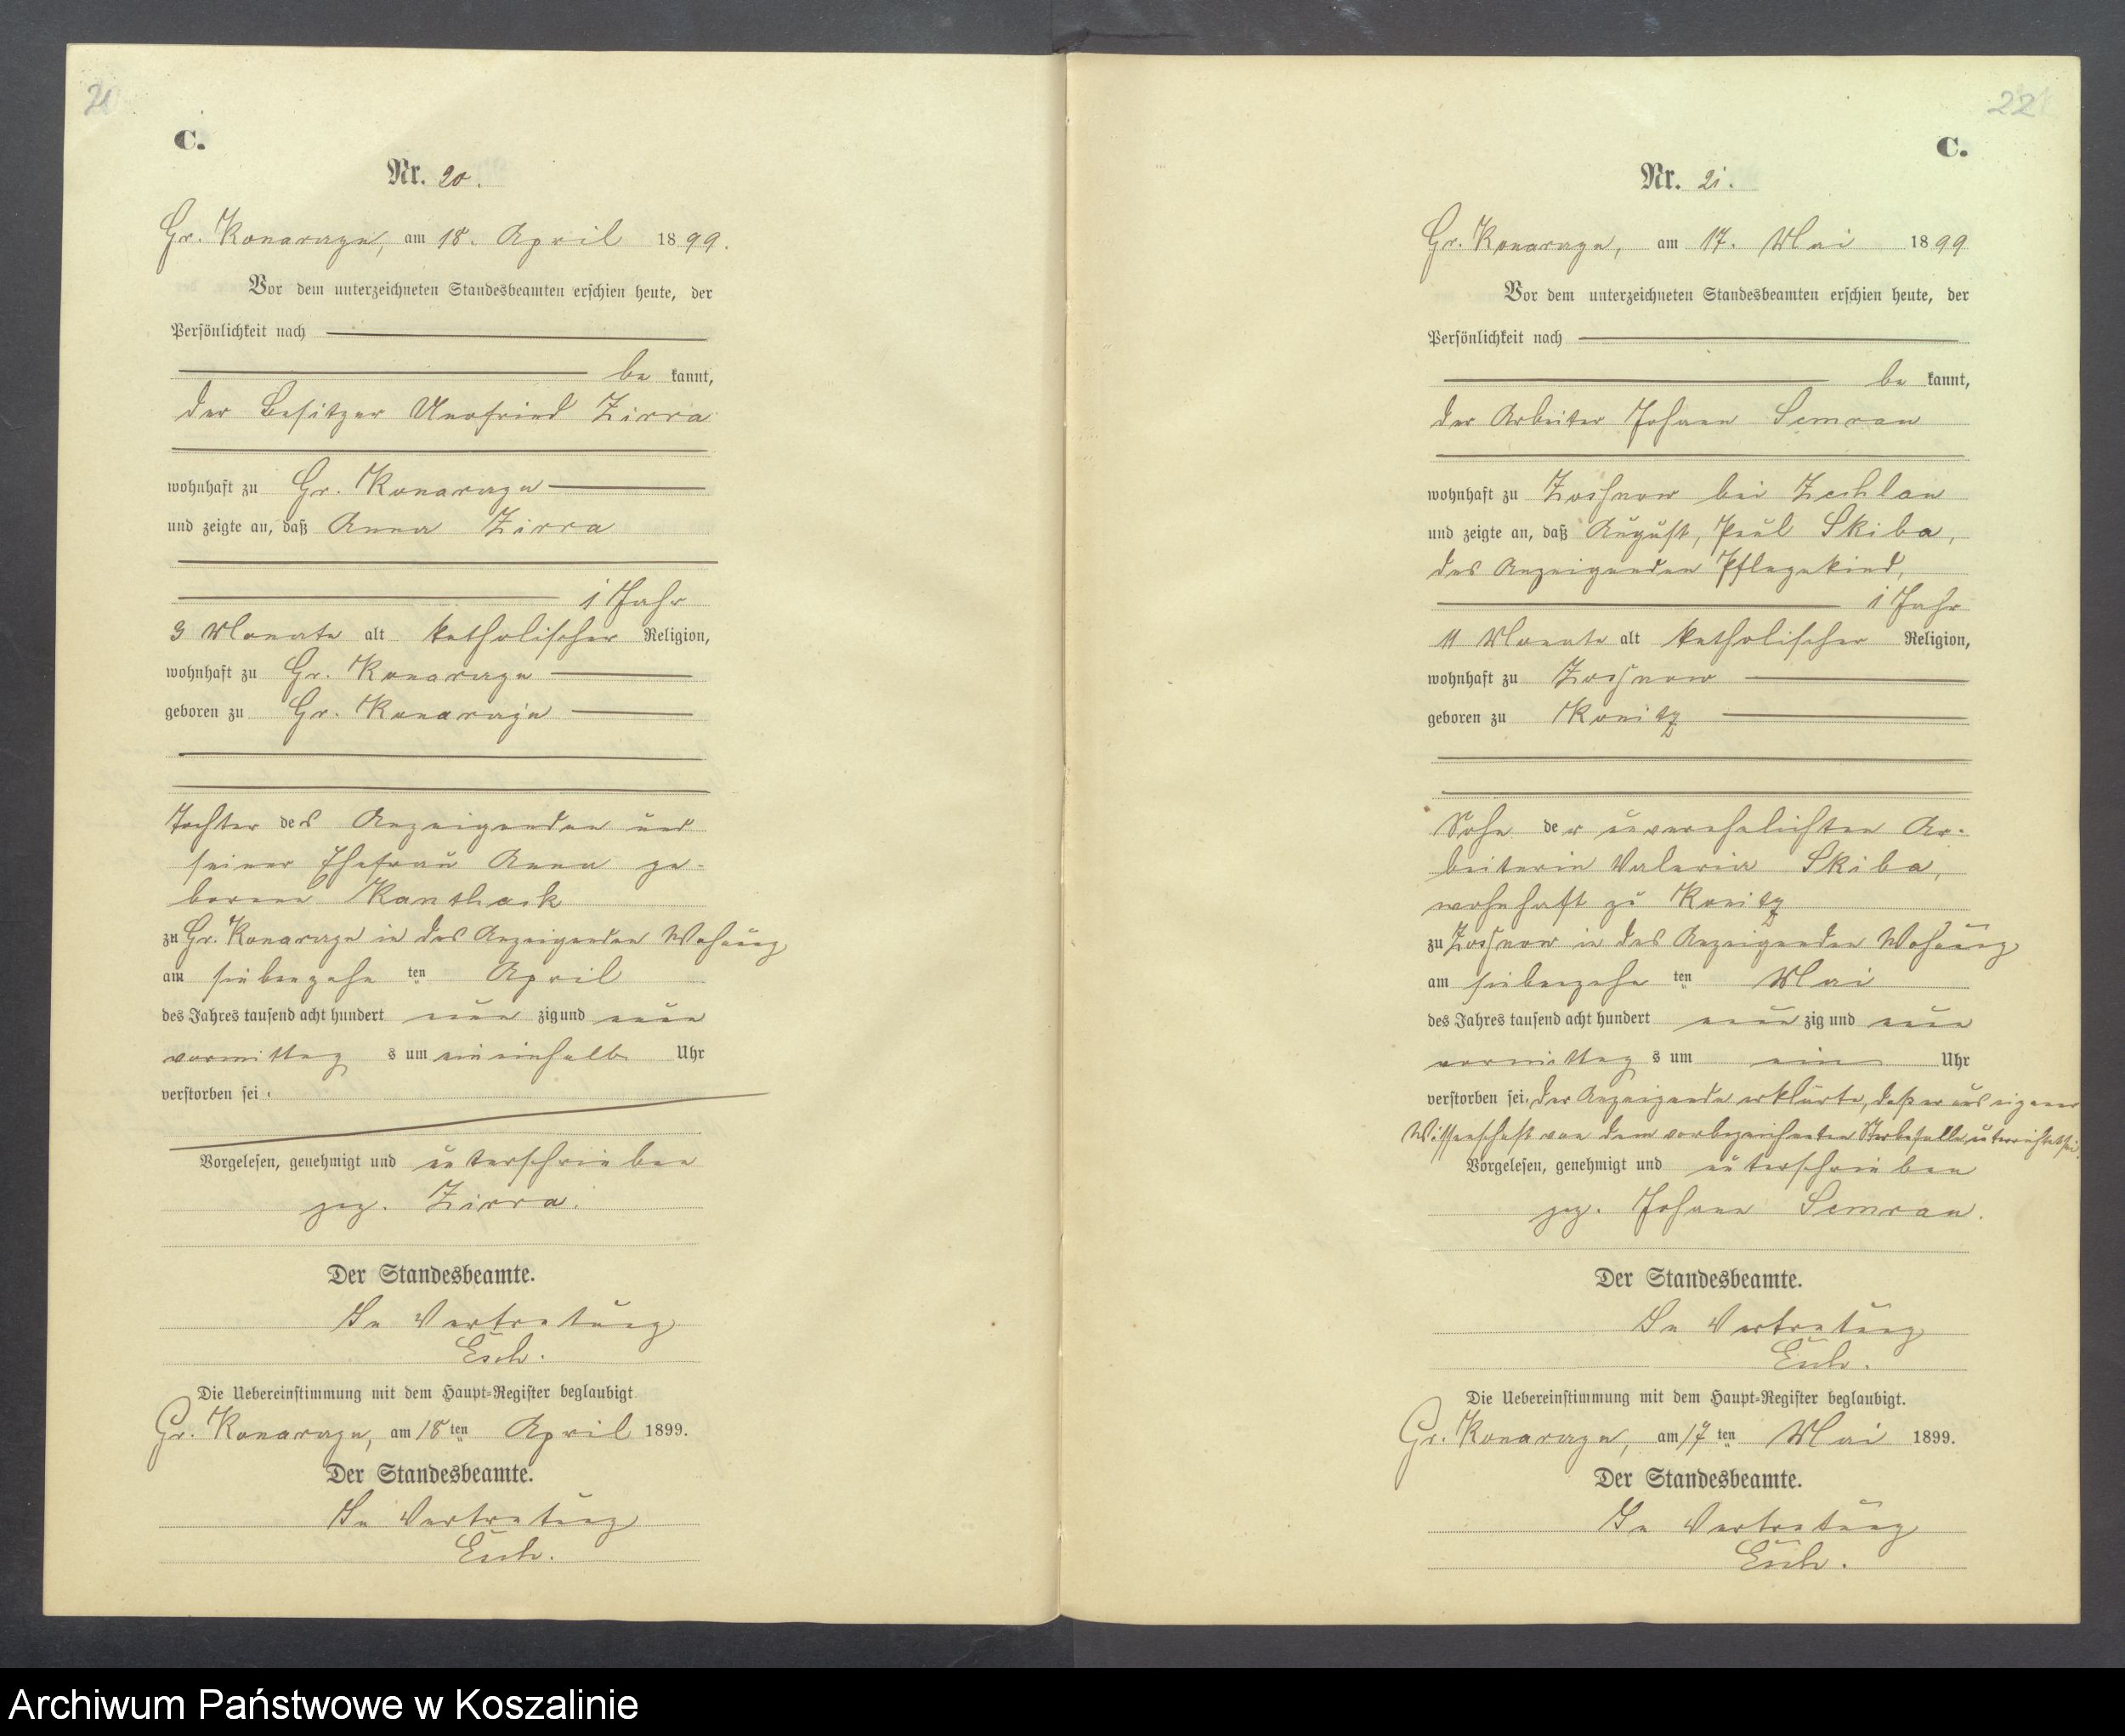 21
C.
Nr. 20.
Gr. Konarzyn, am 18. April 1899.
Vor dem unterzeichneten Standesbeamten erschien heute, der
Persönlichkeit nach
be kannt,
der Besitzer Zirra
wohnhaft zu Gr. Konarzyn
und zeigte an, daß Anna Zirra
1 Jahr
3 Monate alt katholischer Religion,
wohnhaft zu Gr. Konarzyn
geboren zu Gr. Konarzyn
Tochter des Anzeigenden und
seiner Ehefrau Anna ge-
borene Kanthack
zu Gr. Konarzyn in des Anzeigenden Wohnung
am siebenzehn ten April
des Jahres tausend acht hundert neun zig und neun
vormittag s um eineinhalb Uhr
verstorben sei.
Vorgelesen, genehmigt und unterschrieben
gez. Zirra.
Der Standesbeamte.
In Vertretung
Esch.
Die Uebereinstimmung mit dem Haupt-Register beglaubigt
Gr. Konarzyn, am 18 ten April 1899.
Der Standesbeamte.
In Vertretung
Esch.
22
C.
Nr. 21.
Gr. Konarzyn, am 17. Mai 1899
Vor dem unterzeichneten Standesbeamten erschien heute, der
Persönlichkeit nach
be kannt,
der Arbeiter Johann Semrau
wohnhaft zu Zoschnow bei Zechlau
und zeigte an, daß August, Paul Skiba,
des Anzeigenden Pflegekind,
1 Jahr
11 Monate alt katholischer Religion,
wohnhaft zu Zoschnow
geboren zu Konitz
Sohn der unverehelichten Ar-
beiterin Valeria Skiba,
wohnhaft zu Konitz
zu Zoschnow in des Anzeigenden Wohnung
am siebenzehn ten Mai
des Jahres tausend acht hundert neun zig und neun
vormittag s um ein Uhr
verstorben sei. Der Anzeigende erklärte, daß er aus eigener
Wissenschaft von dem vorbezeichneten Sterbefalle unterrichtet sei.
Vorgelesen, genehmigt und unterschrieben
gez. Johann Semrau.
Der Standesbeamte.
In Vertretung
Esch.
Die Uebereinstimmung mit dem Haupt-Register beglaubigt.
Gr. Konarzyn, am 17 ten Mai 1899.
Der Standesbeamte.
In Vertretung
Esch.
Archiwum Państwowe w Koszalinie